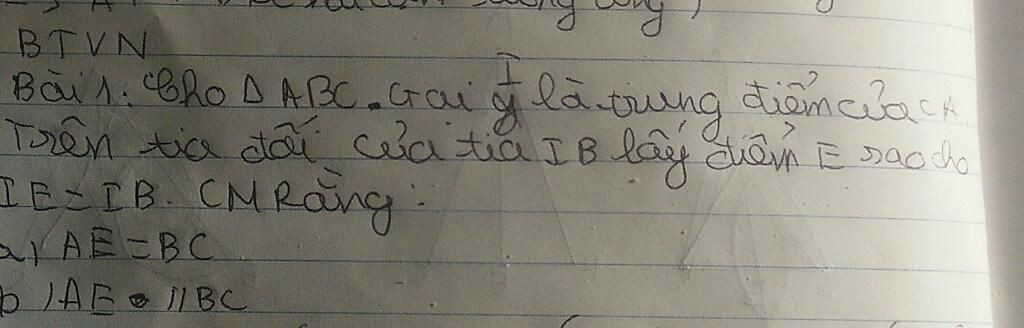 BTVN
Bài 1: Cho Δ ABC. Gọi I là trung điểm của CA.
Trên tia đối của tia IB lấy điểm E sao cho
IE = IB. CM Rằng:
a) AE = BC
b) AE // BC